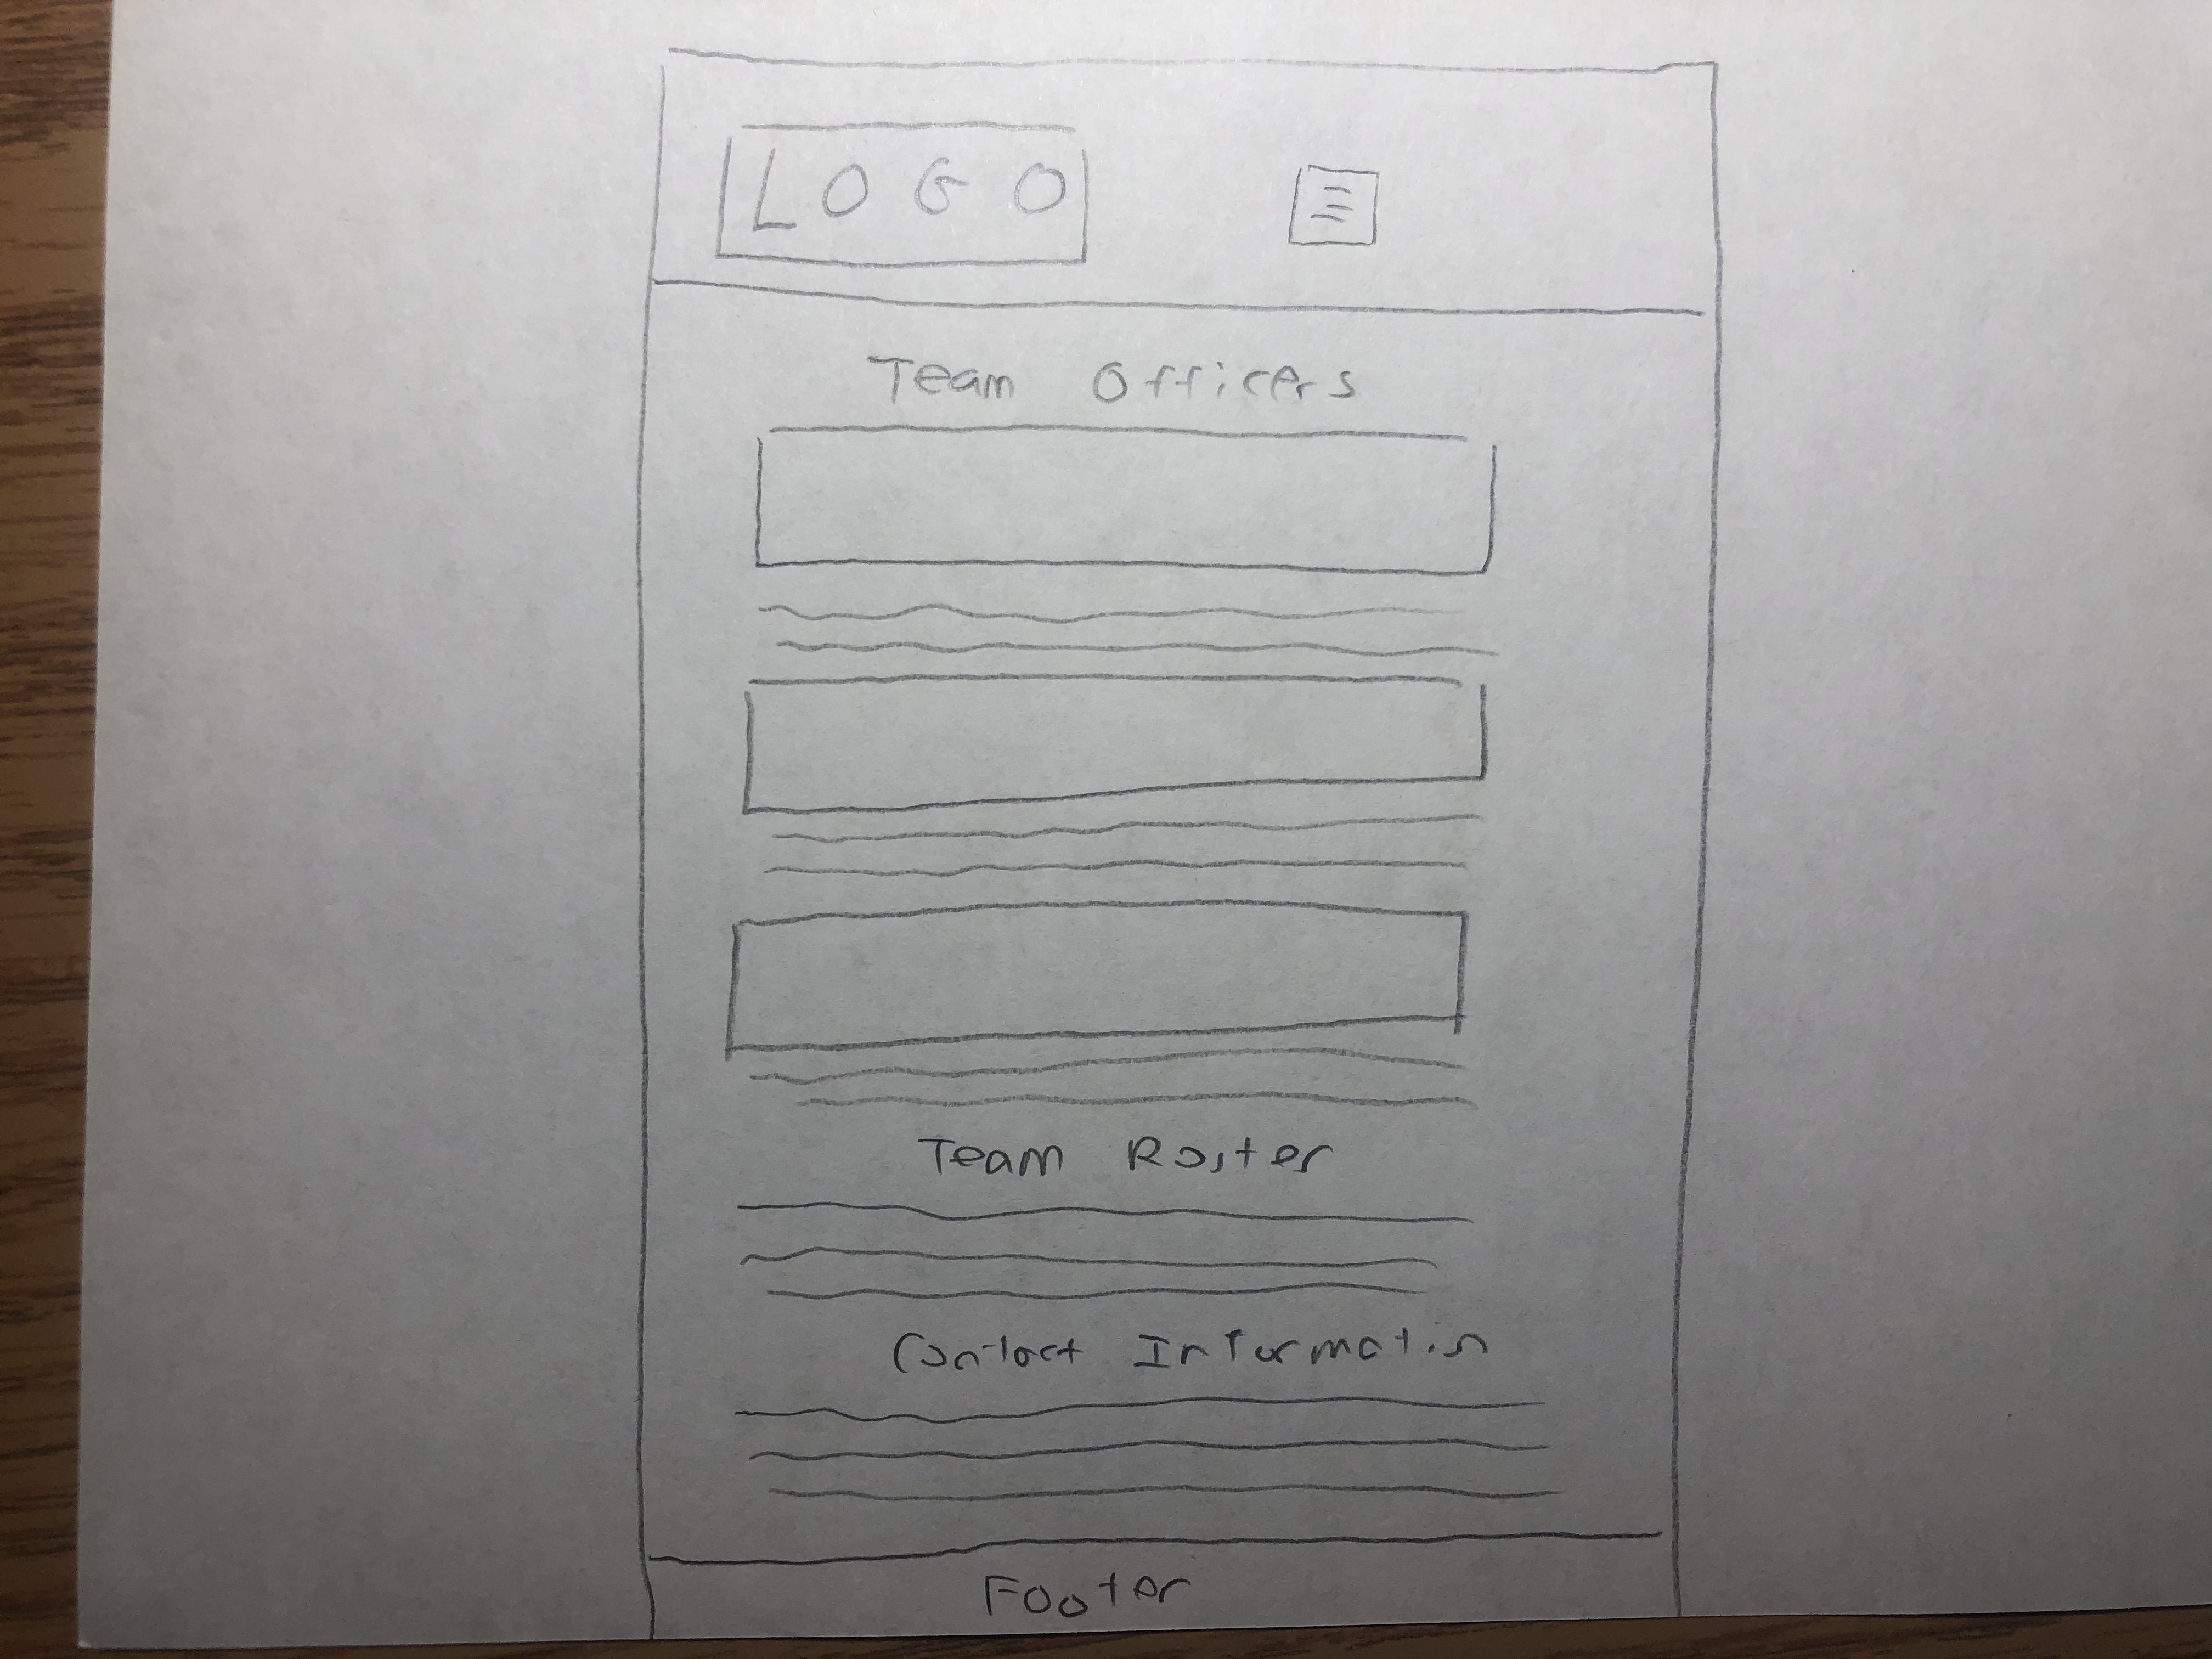 LOGO
Team Officers
Team Roster
Contact Information
Footer